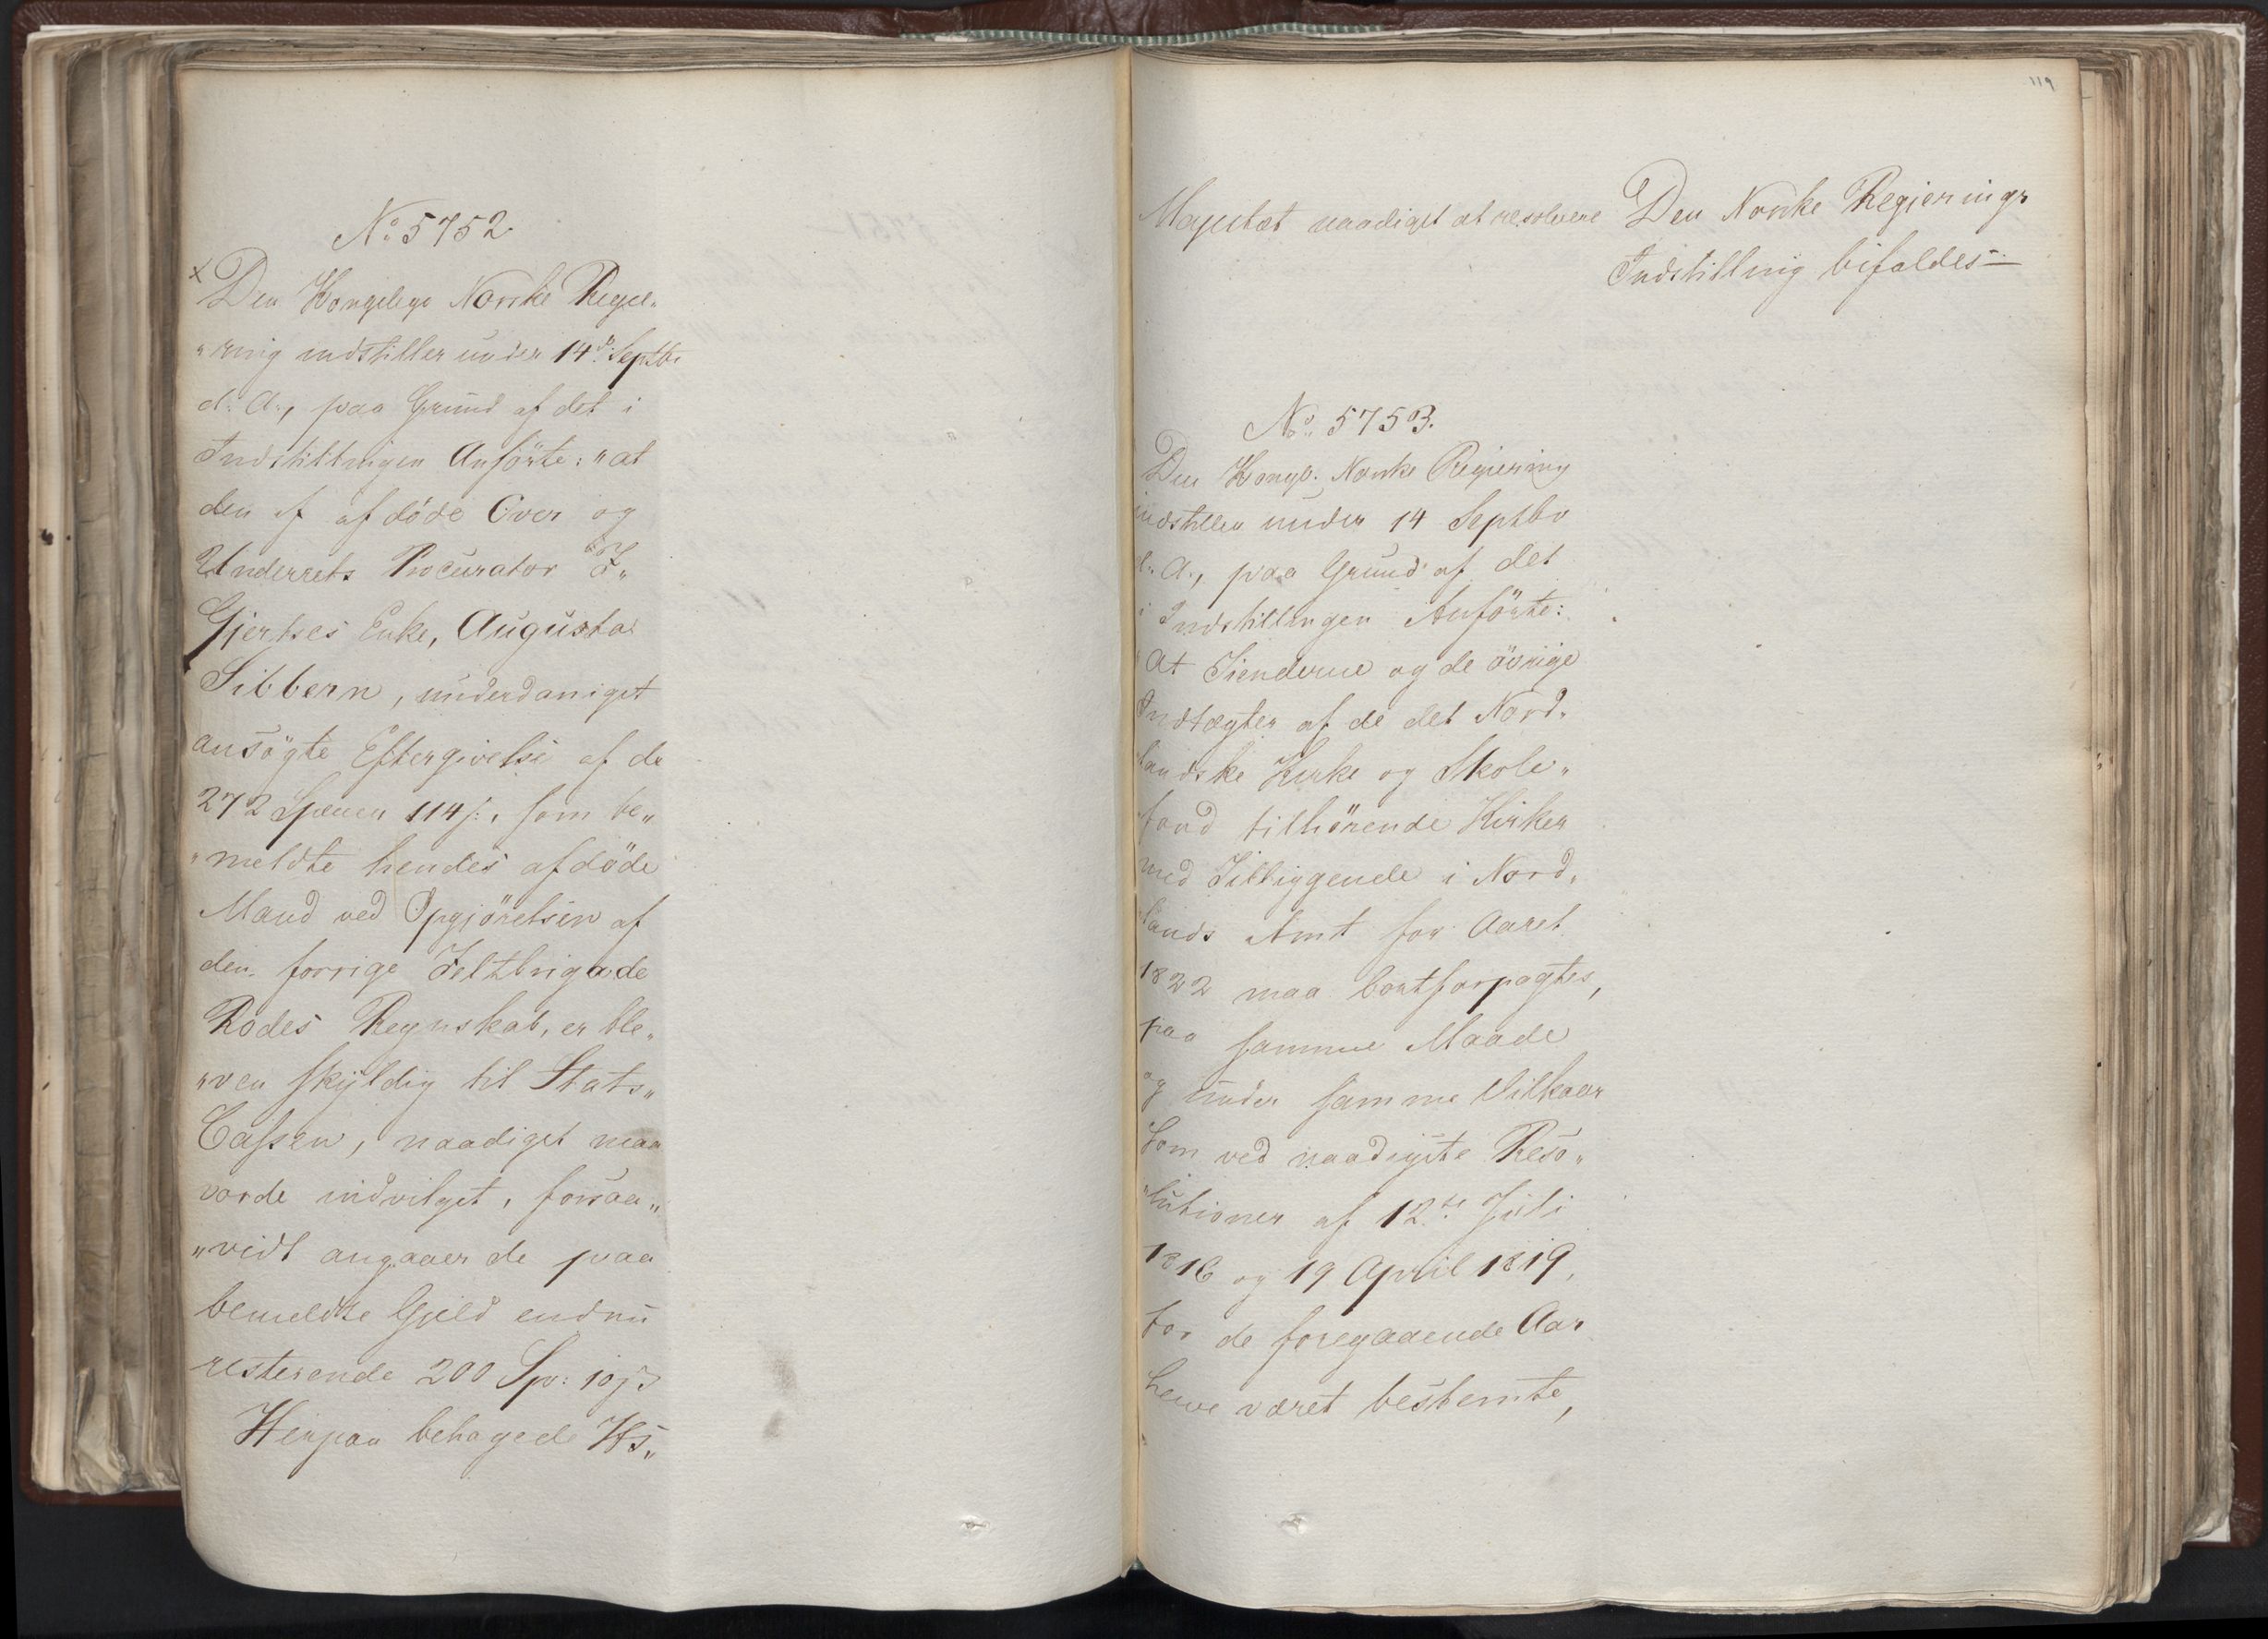 No 5752.
x Den Kongelige Norske Regie„
„ring indstiller under 14d. Septbr
d: A:, paa Grund af det i
Indstillingen Anförte: "at
den af afdöde Over og
Underrets Procurator F„
Gjertses Enke, Augusta
Sibbern, underdanigst
ansögte Eftergivelse af de
272 Specier 114 s:, som be„
„meldte hendes afdöde
Mand ved Opgjörelsen af
den forrige Feltbrigade
Rodes Regnskab, er ble„
„ven skyldig til Stats„
Cassen, naadigst maa
vorde indvilget, forsaa„
„vidt angaaer de paa
bemeldte Gjeld endnu
resterende 200 Spr: 10 s
Herpaa behagede Hs„
119
Majestæt naadigst at resolvere
Den Norske Regierings
Indstilling bifaldes—
No. 5753.
Den Kongl. Norske Regiering
indstiller under 14 Septbr
d. A., paa Grund af det
i Indstillingen Anförte:
"At Tienderne og de övrige
Indtægter af de det Nord„
„landske Kirke og Skole„
fond tilhörende Kirker
med Tilliggende i Nord„
„lands Amt for Aaret
1822 maa bortforpagtes,
paa samme Maade
og under samme Vilkaar
som ved naadigste Reso„
„lutioner af 12te Juli
1816 og 19 April 1819,
for de foregaaende Aar
have været bestemte,